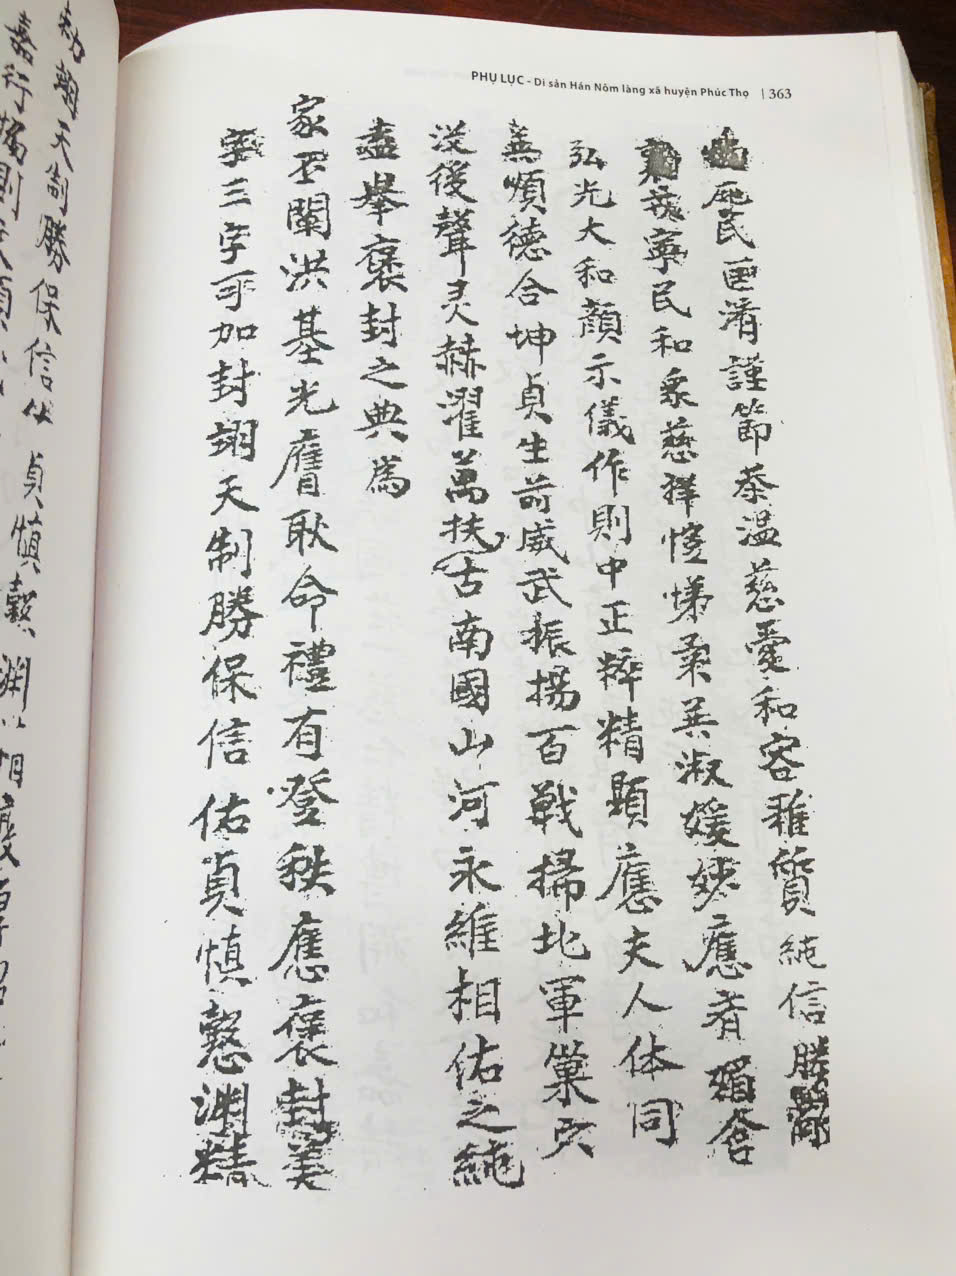 PHỤ LỤC - Di sản Hán Nôm làng xã huyện Phúc Thọ | 363
庇民 淆謹節恭温慈愛和容雅質純信
寧民和衆慈祥愷悌柔巽淑媛妙應者 含
弘光大和顏示儀作則中正粹精顯應夫人体同
巽順德合坤貞生前威武振揚百戰掃北軍巢穴
没後聲灵赫濯萬扶古南國山河永維相佑之純
盡舉褒封之典爲
家丕闡洪基光膺耿命禮有登秩應褒封美
字三字可加封翊天制勝保信佑貞慎慤渊精
朝天制勝保信佑貞慎懿渊
嘉行